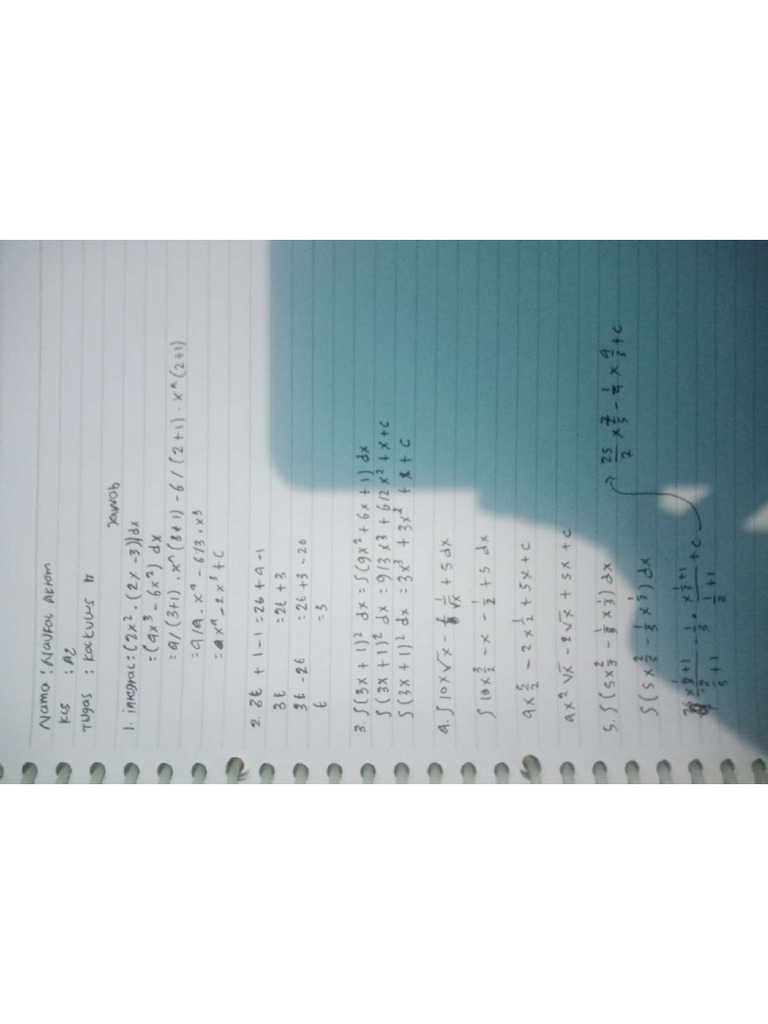 Nama : Naufal Akrom
Kls : A2
Tugas : Kalkulus II
Jawab
1. integral = (2x² · (2x - 3)) dx
= (4x³ - 6x²) dx
= 4/(3+1) · x^(3+1) - 6/(2+1) · x^(2+1)
= 4/4 · x⁴ - 6/3 · x³
= x⁴ - 2x³ + C
2. 3t + 1 - 1 = 2t + 4 - 1
3t = 2t + 3
3t - 2t = 2t + 3 - 2t
t = 3
3. ∫(3x + 1)² dx = ∫(9x² + 6x + 1) dx
∫(3x + 1)² dx = 9/3 x³ + 6/2 x² + x + C
∫(3x + 1)² dx = 3x³ + 3x² + x + C
4. ∫10x√x - 1/√x + 5 dx
∫10x 3/2 - x - 1/2 + 5 dx
4x 5/2 - 2x 1/2 + 5x + C
4x² √x - 2√x + 5x + C
5. ∫(5x 2/3 - 1/3 x 1/3) dx
∫(5x 2/5 - 1/3 x 1/3) dx
+1 / 2/5 + 1 - 1/3 · x 1/3 + 1 / 1/3 + 1 + C
→ 25/7 x 7/5 - 1/4 x 4/3 + C